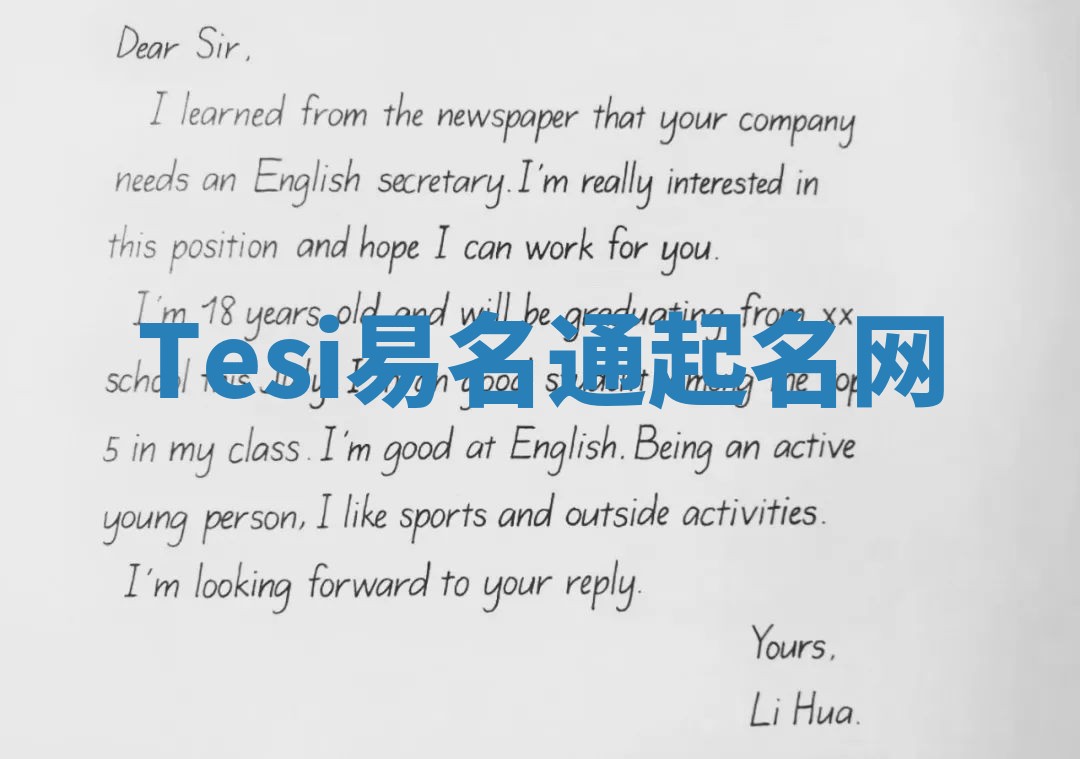 Dear Sir,
I learned from the newspaper that your company
needs an English secretary. I'm really interested in
this position and hope I can work for you.
I'm 18 years old and will be graduating from xx
Tesi易名通起名网
school this July. I good student among the top
5 in my class. I'm good at English. Being an active
young person, I like sports and outside activities.
I'm looking forward to your reply.
Yours,
Li Hua.